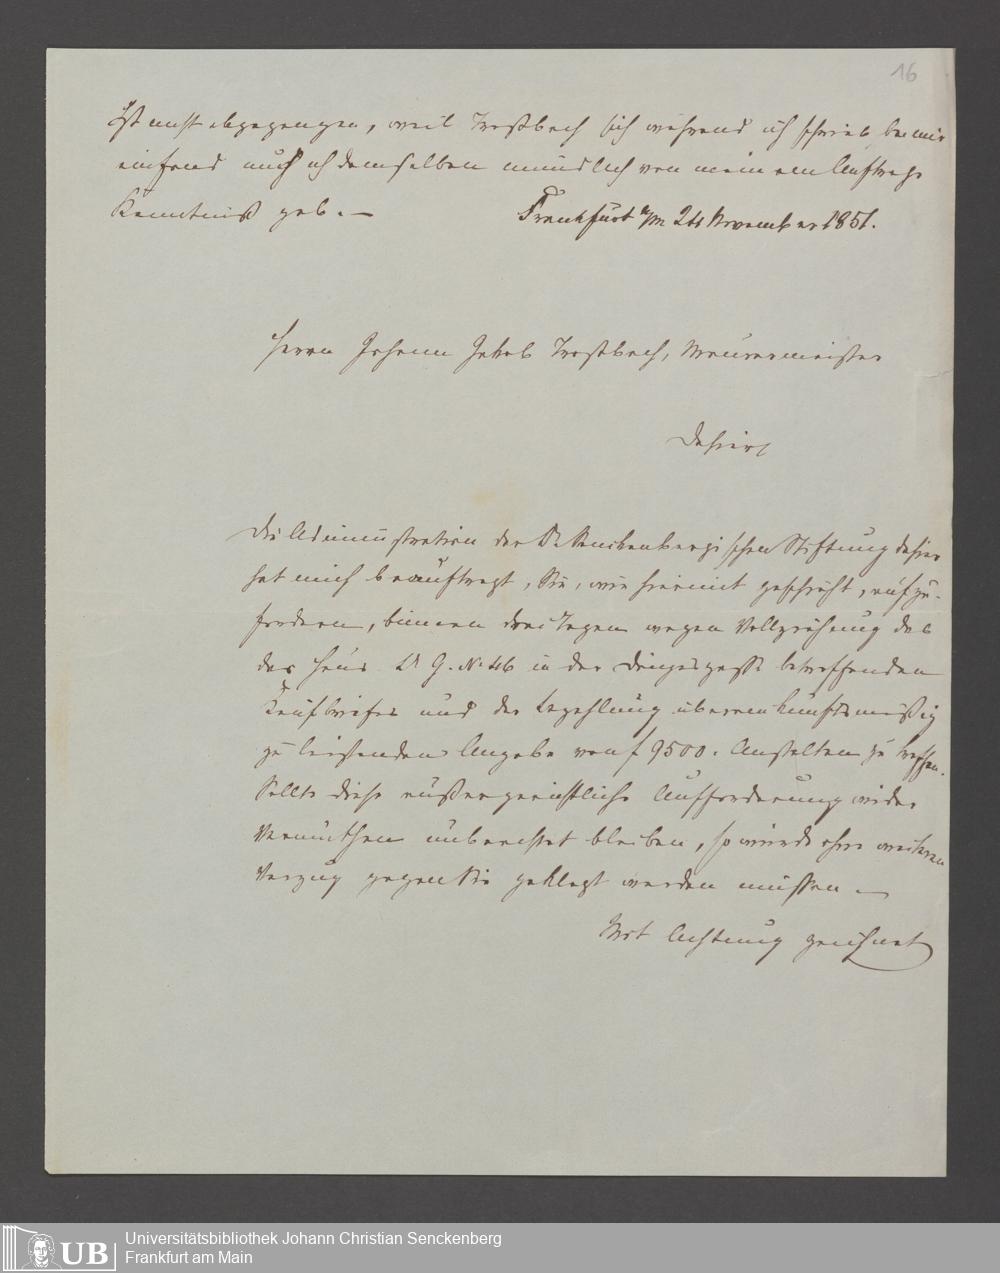 16
Ist nicht abgegangen, weil Trostbach sich während ich schrieb bei mir
einfand und ich demselben mündlich von meinem Auftrage
Kenntniß gab. —
Frankfurt a/m 24 November 1851.
Herrn Johann Jakob Trostbach, Maurermeister
dahier
Die Administration der Dr. Senckenbergischen Stiftung dahier
hat mich beauftragt, Sie, wie hiermit geschieht, aufzu-
fordern, binnen drei Tagen wegen Vollziehung des
das Haus Lit G. No 46 in der Döngesgasse betreffenden
Kaufbriefes und der Bezahlung übereinkunftsmäßig
zu leistenden Angabe von f 9500. Anstalten zu treffen.
Sollte diese außergerichtliche Aufforderung wider
Vermuthen unbeachtet bleiben, so würde ohne weiteren
Verzug gegen Sie geklagt werden müssen. —
Mit Achtung zeichnet
UB
Universitätsbibliothek Johann Christian Senckenberg
Frankfurt am Main